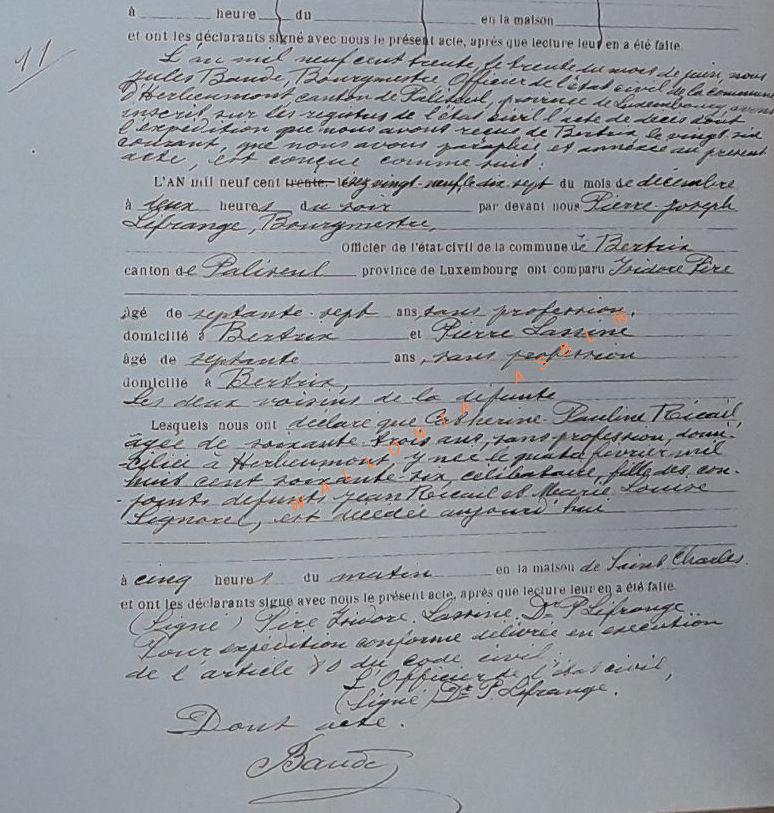 à heure du en la maison
et ont les déclarants signé avec nous le présent acte, après que lecture leur en a été faite.
11
L'an mil neuf cent trente, le trente du mois de juin, nous
Jules Baude, Bourgmestre Officier de l'état civil de la commune
d'Herbeumont canton de Paliseul, province de Luxembourg, avons
inscrit sur les registres de l'état civil l'acte de décès dont
l'expédition que nous avons reçue de Bertrix le vingt six
courant, que nous avons paraphée et annexée au présent
acte, est conçue comme suit:
L'AN mil neuf cent trente, vingt-neuf, le dix sept du mois de décembre
à deux heures du soir par devant nous Pierre Joseph
Lifrange, Bourgmestre,
Officier de l'état civil de la commune de Bertrix
canton de Paliseul province de Luxembourg ont comparu Isidore Pire
âgé de septante-sept ans, sans profession,
domicilié à Bertrix et Pierre Lassine
âgé de septante ans, sans profession
domicilié à Bertrix,
Les deux voisins de la défunte
Lesquels nous ont déclaré que Catherine Pauline Ricail,
âgée de soixante-trois ans, sans profession, domi-
-ciliée à Herbeumont, y née le quatre février mil
huit cent soixante-six, célibataire, fille des con-
-joints défunts Jean Ricail et Marie Louise
Lignorel, est décédée aujourd'hui
à cinq heures du matin en la maison de Saint Charles.
et ont les déclarants signé avec nous le présent acte, après que lecture leur en a été faite.
(Signé) Pire Isidore. Lassine. Dr P. Lifrange
Pour expédition conforme délivrée en exécution
de l'article 80 du code civil
L'Officier de l'état civil,
(Signé) Dr P. Lifrange.
Dont acte.
Baude
WALLONIA ASBL ®